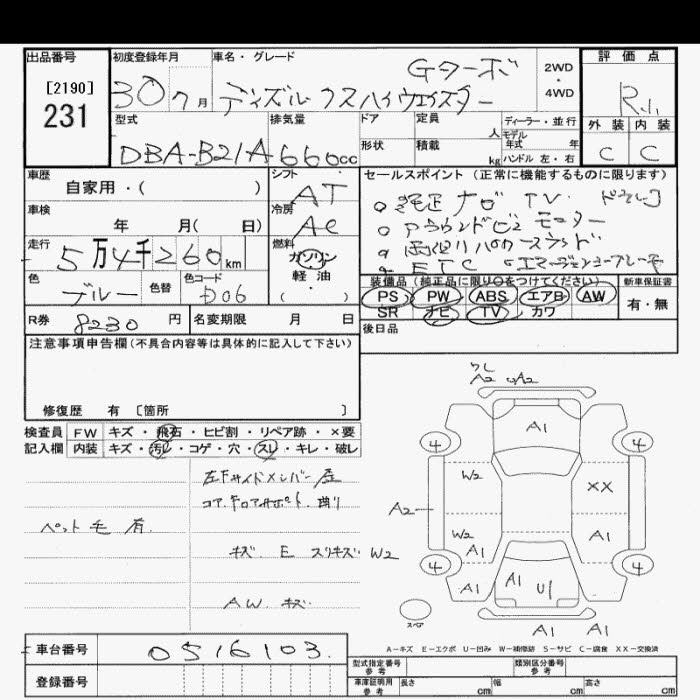 出品番号 初度登録年月 車名・グレード 評価点
[2190] Gターボ 2WD
231 30 7月 デイズルークスハイウェイスター ・4WD R1
型式 排気量 ドア 定員 ディーラー・並行 外装 内装
人 モデル年式 年
DBA-B21A 660cc 形状 積載 kg ハンドル 左・右 C C
車歴 シフト セールスポイント (正常に機能するものに限ります)
自家用・( ) AT 純正ナビ TV
車検 冷房 アラウンドビューモニター
年 月( 日) AC 両側パワースライド
走行 燃料 ETC エマージェンシーブレーキ
5万4千260km ガソリン
色 色替 色コード 軽油 装備品 (純正品に限り○をつけてください) 新車保証書
ブルー D06 ( ) PS PW ABS エアB AW 有・無
SR ナビ TV カワ
R券 8230円 名変期限 月 日 後日品
注意事項申告欄(不具合内容等は具体的に記入して下さい)
修復歴 有 〔箇所 〕
検査員 FW キズ・飛石・ヒビ割・リペア跡・×要
記入欄 内装 キズ・汚レ・コゲ・穴・スレ・キレ・破レ
左Fサイドメンバー
コアキロアサポート 曲り
ペット毛 有
キズ E スリキズ W2
AW キズ
A2 A2
A1
4 4
W2 XX
A2
W2 A1 A1
4 4
A1 A1 U1 A1
スペア
A1 A1
A-キズ E-エクボ U-凹み W-補修跡 S-サビ C-腐食 XX-交換済
車台番号 0516103
登録番号
型式指定番号 参考 類別区分番号 参考
車庫証明用 参考 長さ cm 幅 cm 高さ cm